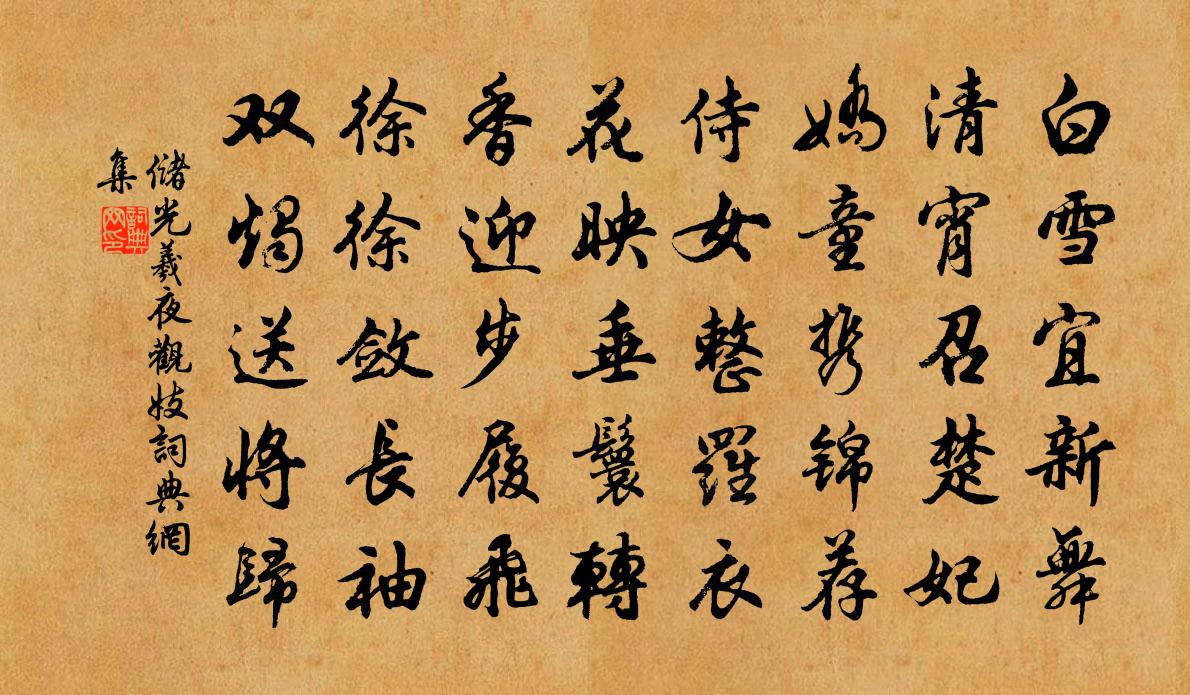 白雪宜新舞
清宵召楚妃
嬌童携锦荐
侍女整羅衣
花映垂鬟轉
香迎步履飛
徐徐斂長袖
双燭送將歸
儲光羲夜觀妓詞典網
集
詞典
网印